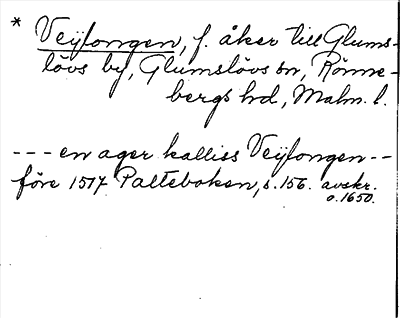 * Veÿlongen, f. åker till Glums-
lövs by, Glumslövs sn, Rönne-
bergs hd, Malm. l.
--- en ager kalliss Veÿlongen --
före 1517 Palteboken, s. 156. avskr.
o. 1650.